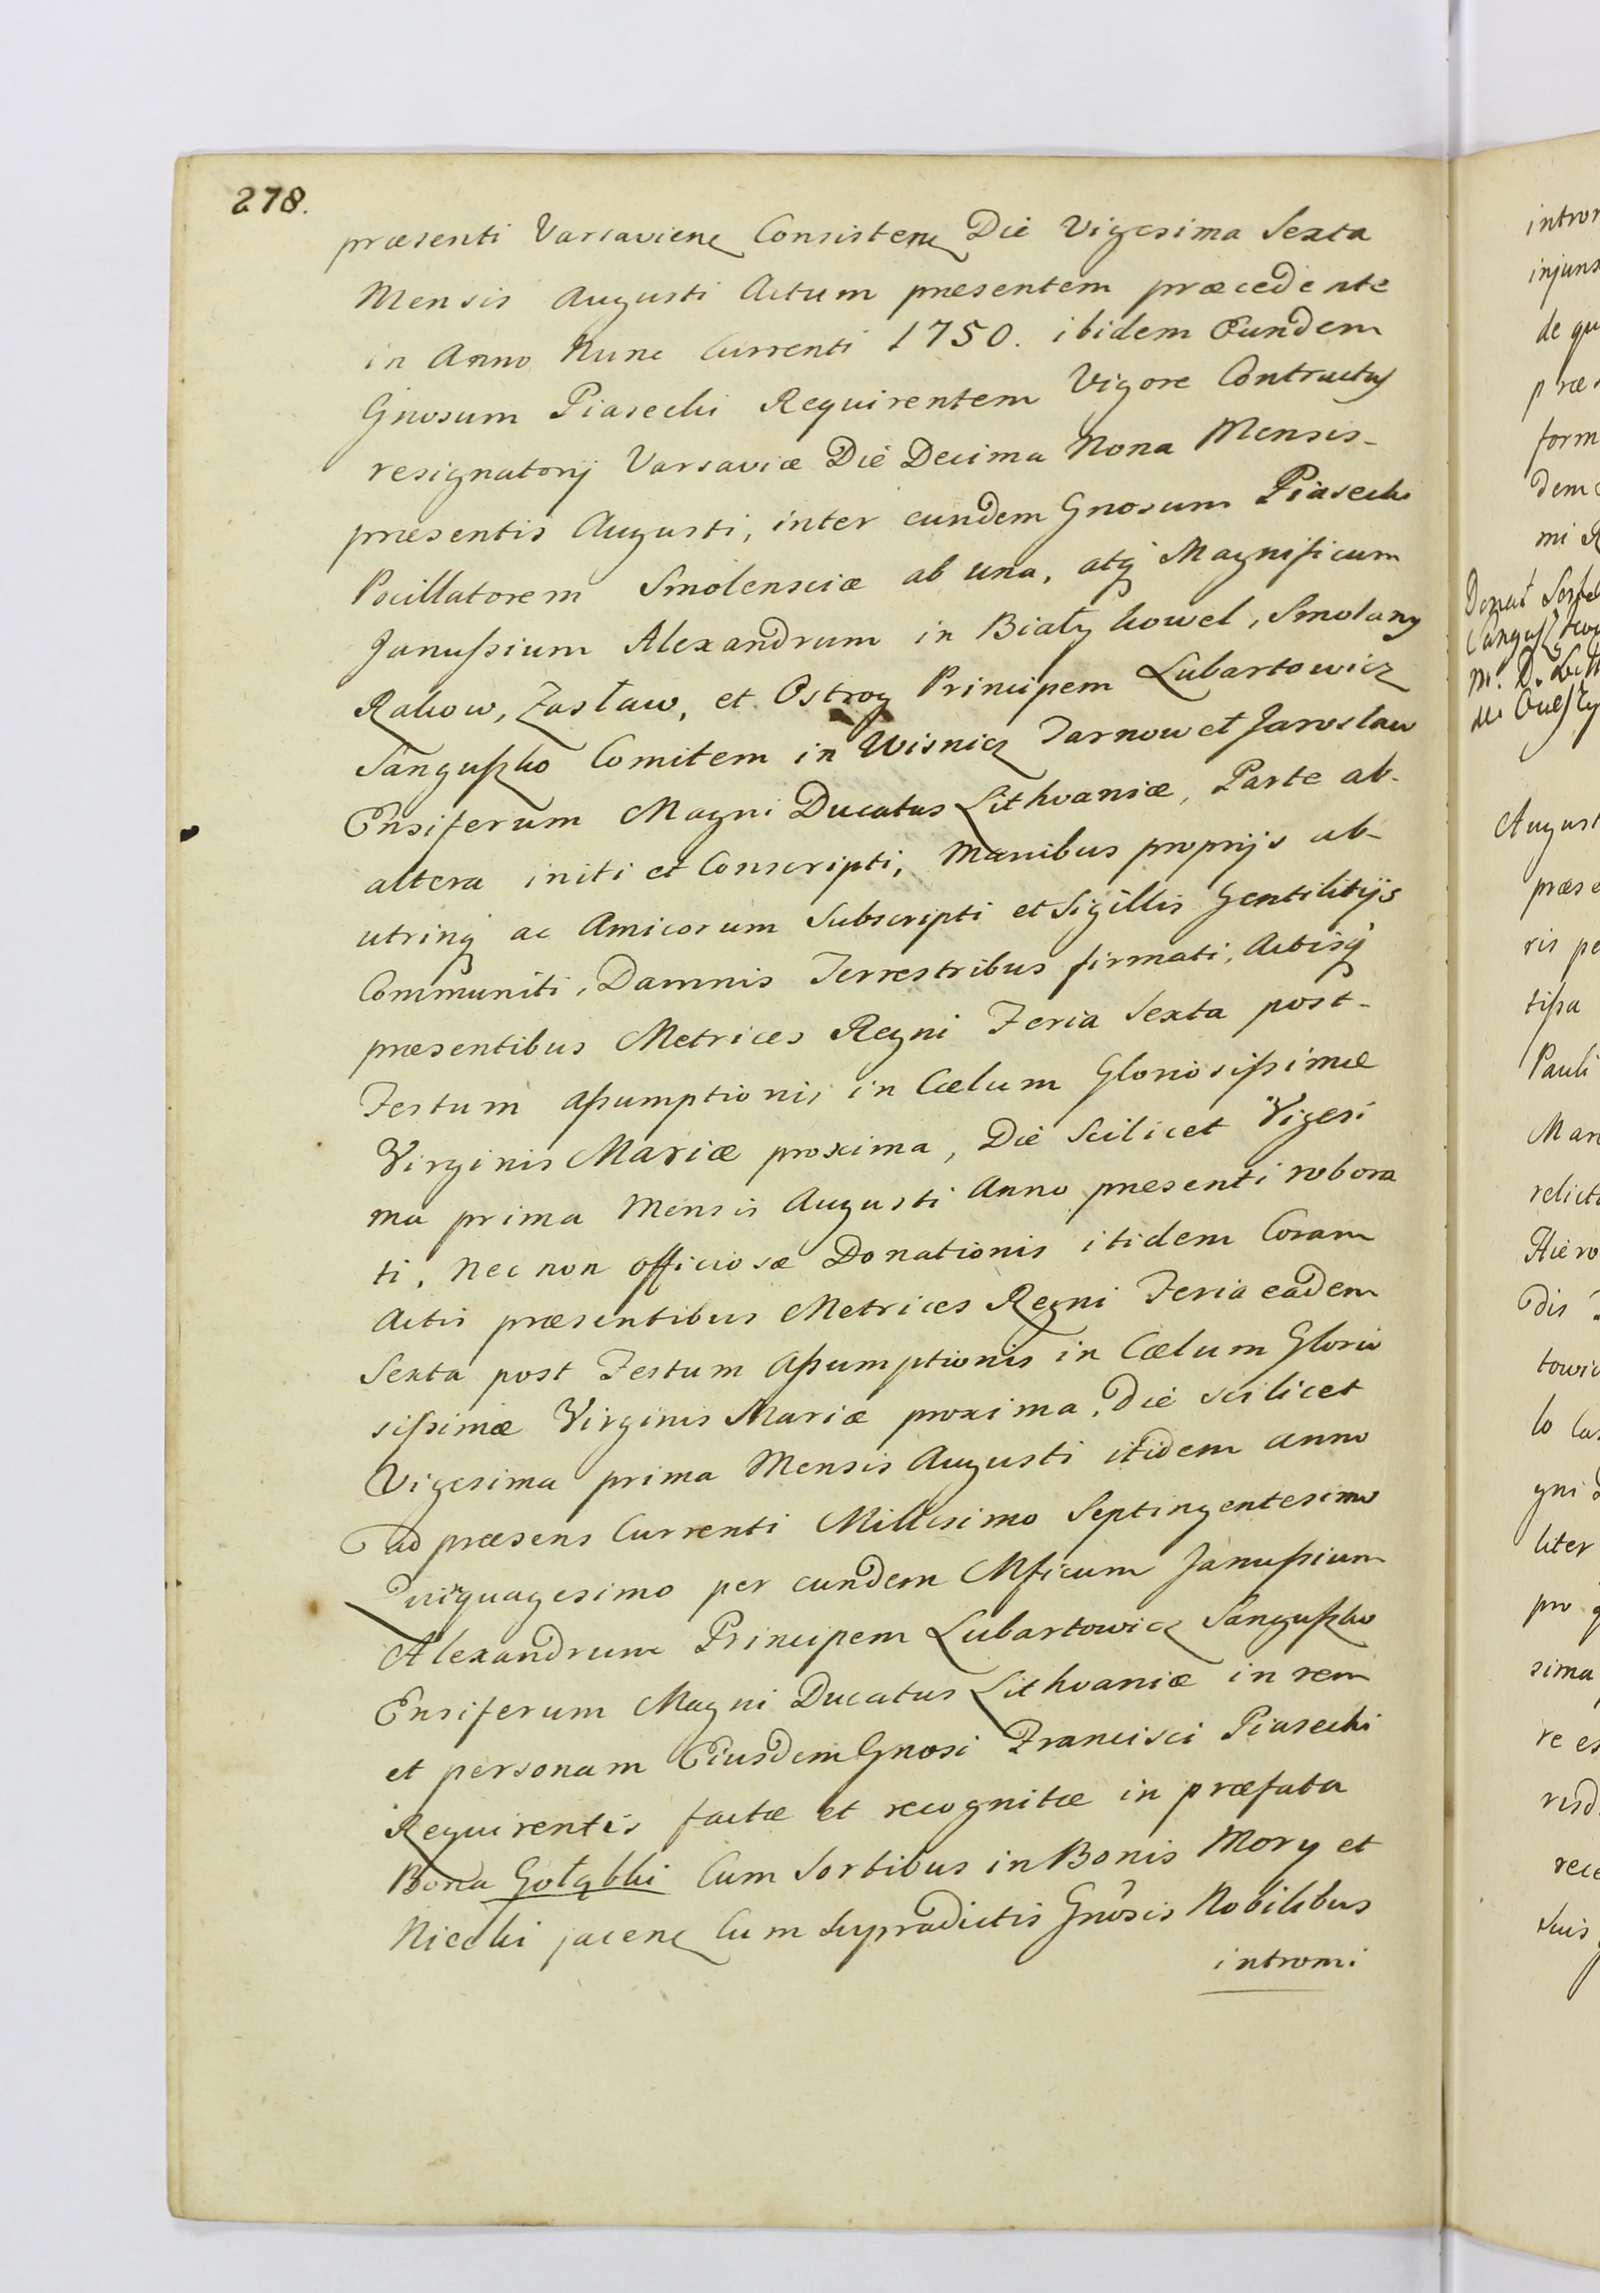 278.
præsenti Varsavienẹ Consistenẹ Die Vigesima Sexta
Mensis Augusti Actum præsentem præcedente
in Anno Nunc Currenti 1750. ibidem Eundem
Gnosum Piasecki Requirentem Vigore Contractus
resignatorij Varsaviæ Die Decima Nona Mensis-
præsentis Augusti, inter eundem Gnosum Piasecki
Pocillatorem Smolensciæ ab una, atq Magnificum
Janußium Alexandrum in Biały kowel, Smolany
Rakow, Zasław, et Ostrog Principem Lubartowicz
Sangußko Comitem in Wisnicz Tarnow et Jaroslaw
Ensiferum Magni Ducatus Lithvaniæ, Parte ab-
altera initi et Conscripti, Manibus proprijs ab-
utrinq ac Amicorum Subscripti et Sigillis Gentilitijs
Communiti, Damnis Terrestribus firmati, Actisq
præsentibus Metrices Regni Feria Sexta post-
Festum Aßumptionis in Cælum Gloriosißimæ
Virginis Mariæ proxima, Die Scilicet Vigesi
ma prima Mensis Augusti Anno præsenti robora
ti, Nec non officiosæ Donationis itidem Coram
Actis præsentibus Metrices Regni Feria eadem
Sexta post Festum Aßumptionis in Cælum Glorio
sißimæ Virginis Mariæ proxima, Die scilicet
Vigesima prima Mensis Augusti itidem anno
ad præsens Currenti Millesimo Septingentesimo
Quinquagesimo per eundem Mficum Janußium
Alexandrum Principem Lubartowicz Sangußko
Ensiferum Magni Ducatus Lithvaniæ in rem
et personam Eiusdem Gnosi Francisci Piasecki
Requirentis factæ et recognitæ in præfata
Bona Gołąbki Cum Sortibus in Bonis Mory et
Nicolki jacenẹ Cum Supradictis Gnosis Nobilibus
intromi
intror
injuns
de qu
præs
form
dem
mi R
Donat
M. D. Litt
August
præse
ris pe
tißa
Pauli
Mari
relict
Hiero
dis
towic
lo Cas
gni
liter
pro q
sima
re es
resd
rece
suis